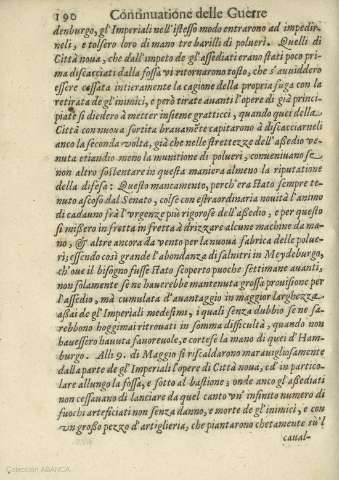 190 Continuatione delle Guerre
denburgo, gl'Imperiali nell'istesso modo entrarono ad impedir-
neli, e tolsero loro di mano tre barilli di polueri. Quelli di
Città noua, che dall'impeto de gl'assediati erano stati poco pri
ma discacciati dalla fossa vi ritornarono tosto, che s'auuiddero
essere cessata intieramente la cagione della propria fuga con la
retirata de gl'inimici, e però tirate auanti l'opere di già princi-
piate si diedero à metter insieme gratticci, quando quei della
Città con nuoua sortita brauamēte capitarono à discacciarneli
anco la seconda volta, già che nelle strettezze dell'assedio ve-
nuta etiandio meno la munitione di polueri, conueniuano se
non altro sostentare in questa maniera almeno la riputatione
della difesa: Questo mancamento, perch'era stato sempre te-
nuto ascoso dal Senato, colse con estraordinaria nouità l'animo
di cadauno frà l'vrgenze più rigorose dell'assedio, e per questo
si missero in fretta in fretta à drizzare alcune machine da ma-
no, & altre ancora da vento per la nuoua fabrica delle polue-
ri; essendo così grande l'abondanza di salnitri in Meydeburgo,
ch'oue il bisogno fusse stato scoperto puoche settimane auanti,
non solamente se ne hauerebbe mantenuta grossa prouisione per
l'assedio, mà cumulata d'auantaggio in maggior larghezza
assai de gl'Imperiali medesimi, i quali senza dubbio se ne sa-
rebbono hoggimai ritrouati in somma difficultà, quando non
hauessero hauuta fauoreuole, e cortese la mano di quei d'Ham-
burgo. Alli 9. di Maggio si riscaldarono marauigliosamente
dalla parte de gl'Imperiali l'opere di Città noua, ed in partico-
lare allungo la fossa, e sotto al bastione; onde anco gl'assediati
non cessauano di lanciare da quel canto vn' infinito numero di
fuochi arteficiati non senza danno, e morte de gl'inimici, e con
vn grosso pezzo d'artiglieria, che piantarono chetamente sù'l
caual-
Colección ABANCA